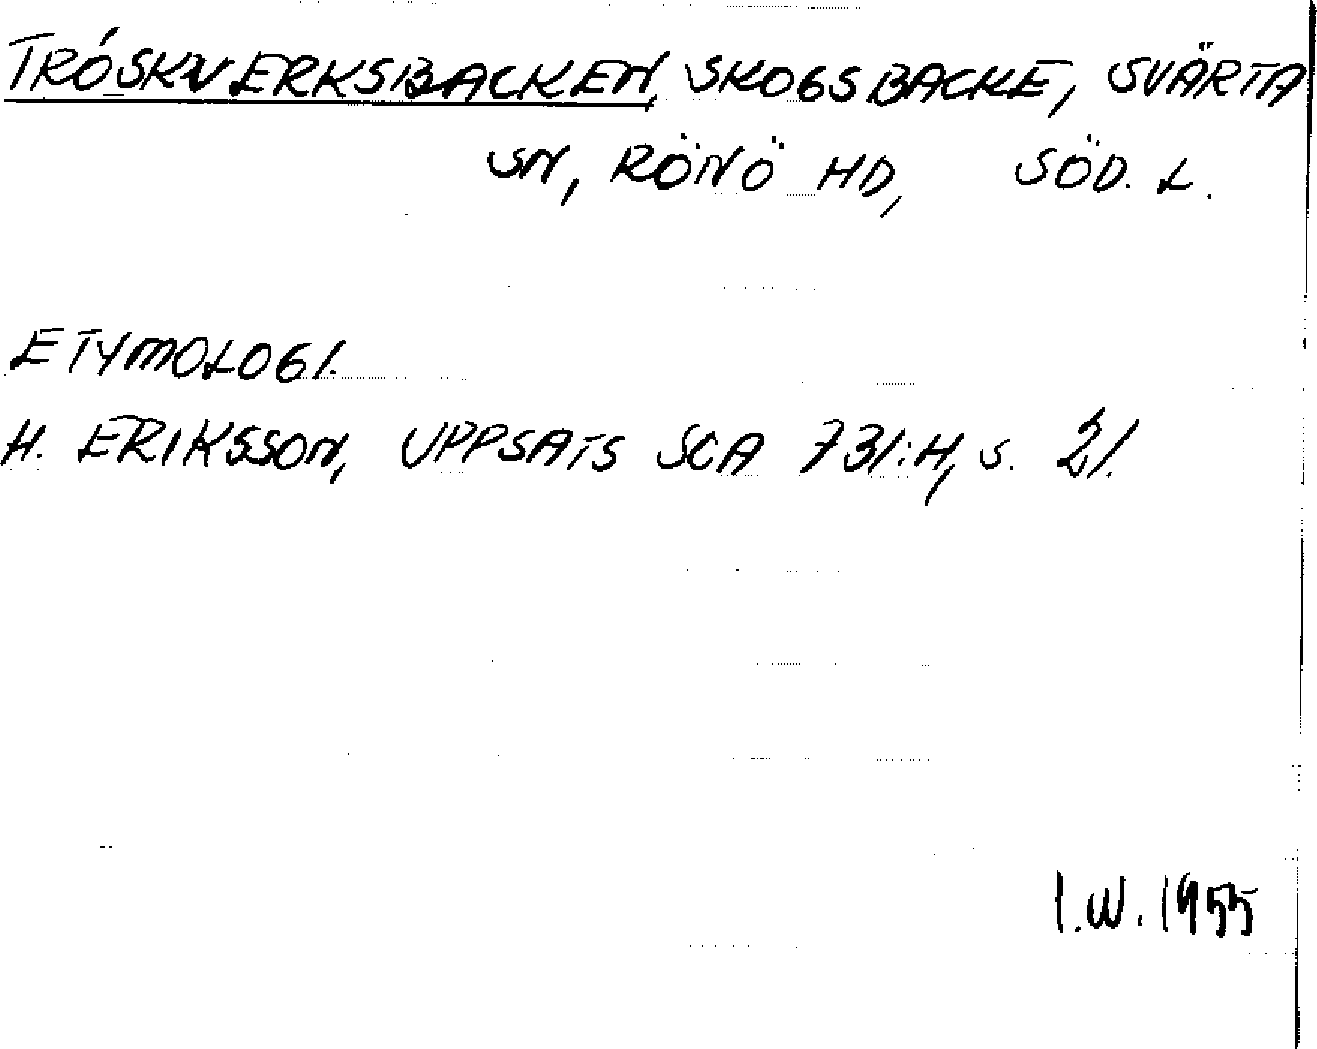 TRÖSKVERKSBACKEN, SKOGSBACKE, SVÄRTA
SN, RÖNÖ HD, SÖD. L.
ETYMOLOGI.
H. ERIKSSON, UPPSATS SOA 731:H, S. 21.
I.W. 1955